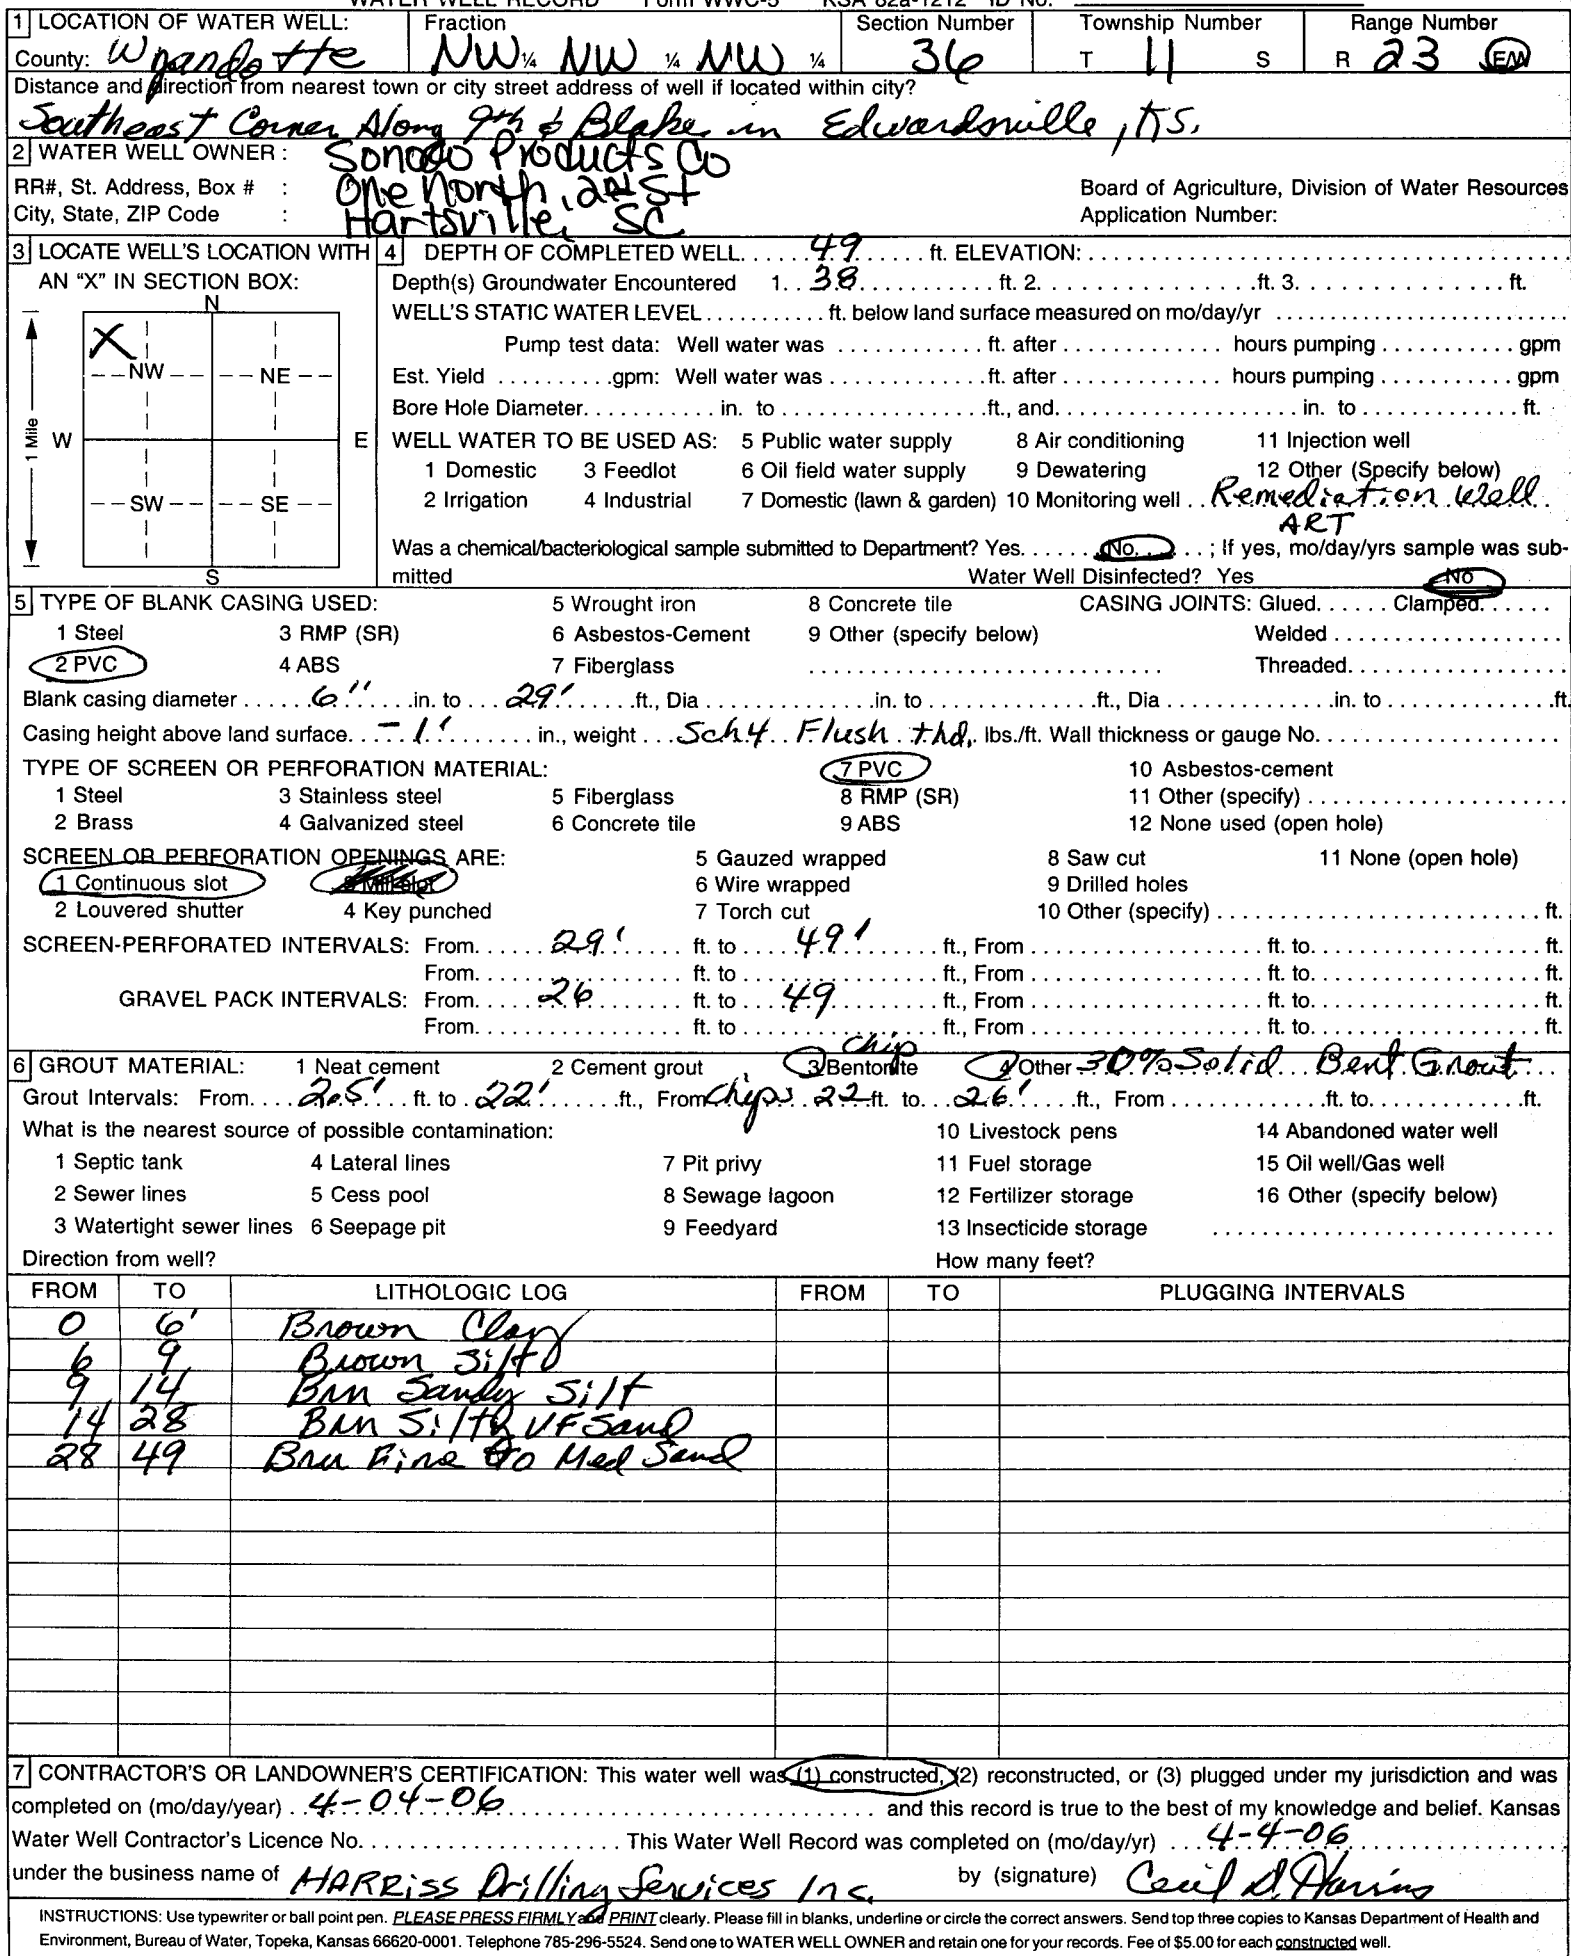 WATER WELL RECORD Form WWC-5 KSA 82a-1212 ID No.
1 LOCATION OF WATER WELL: Fraction Section Number Township Number Range Number
County: Wyandotte NW ¼ NW ¼ NW ¼ 36 T 11 S R 23 E/W
Distance and direction from nearest town or city street address of well if located within city?
Southeast Corner Along 9th & Blake in Edwardsville, KS.
2 WATER WELL OWNER: Sonoco Products Co
RR#, St. Address, Box # : One North 2nd St Board of Agriculture, Division of Water Resources
City, State, ZIP Code : Hartsville, SC Application Number:
3 LOCATE WELL'S LOCATION WITH 4 DEPTH OF COMPLETED WELL. 49 ft. ELEVATION:
AN "X" IN SECTION BOX: Depth(s) Groundwater Encountered 1. 38 ft. 2. ft. 3. ft.
N WELL'S STATIC WATER LEVEL ft. below land surface measured on mo/day/yr
X Pump test data: Well water was ft. after hours pumping gpm
NW NE Est. Yield gpm: Well water was ft. after hours pumping gpm
Bore Hole Diameter in. to ft., and in. to ft.
1 Mile W E WELL WATER TO BE USED AS: 5 Public water supply 8 Air conditioning 11 Injection well
1 Domestic 3 Feedlot 6 Oil field water supply 9 Dewatering 12 Other (Specify below)
SW SE 2 Irrigation 4 Industrial 7 Domestic (lawn & garden) 10 Monitoring well Remediation Well
ART
Was a chemical/bacteriological sample submitted to Department? Yes No ; If yes, mo/day/yrs sample was sub-
S mitted Water Well Disinfected? Yes No
5 TYPE OF BLANK CASING USED: 5 Wrought iron 8 Concrete tile CASING JOINTS: Glued Clamped
1 Steel 3 RMP (SR) 6 Asbestos-Cement 9 Other (specify below) Welded
2 PVC 4 ABS 7 Fiberglass Threaded
Blank casing diameter 6" in. to 29' ft., Dia in. to ft., Dia in. to ft.
Casing height above land surface -1' in., weight Sch 4 Flush thd. lbs./ft. Wall thickness or gauge No.
TYPE OF SCREEN OR PERFORATION MATERIAL: 7 PVC 10 Asbestos-cement
1 Steel 3 Stainless steel 5 Fiberglass 8 RMP (SR) 11 Other (specify)
2 Brass 4 Galvanized steel 6 Concrete tile 9 ABS 12 None used (open hole)
SCREEN OR PERFORATION OPENINGS ARE: 5 Gauzed wrapped 8 Saw cut 11 None (open hole)
1 Continuous slot 3 Mill slot 6 Wire wrapped 9 Drilled holes
2 Louvered shutter 4 Key punched 7 Torch cut 10 Other (specify) ft.
SCREEN-PERFORATED INTERVALS: From 29' ft. to 49' ft., From ft. to ft.
From ft. to ft., From ft. to ft.
GRAVEL PACK INTERVALS: From 26 ft. to 49 ft., From ft. to ft.
From ft. to ft., From ft. to ft.
chip
6 GROUT MATERIAL: 1 Neat cement 2 Cement grout 3 Bentonite 4 Other 30% Solid Bent Grout
Grout Intervals: From 2.5' ft. to 22' ft., From chips 22 ft. to 26' ft., From ft. to ft.
What is the nearest source of possible contamination: 10 Livestock pens 14 Abandoned water well
1 Septic tank 4 Lateral lines 7 Pit privy 11 Fuel storage 15 Oil well/Gas well
2 Sewer lines 5 Cess pool 8 Sewage lagoon 12 Fertilizer storage 16 Other (specify below)
3 Watertight sewer lines 6 Seepage pit 9 Feedyard 13 Insecticide storage
Direction from well? How many feet?
FROM TO LITHOLOGIC LOG FROM TO PLUGGING INTERVALS
0 6' Brown Clay
6 9 Brown Silt
9 14 Brn Sandy Silt
14 28 Brn Silty VF Sand
28 49 Brn Fine to Med Sand
7 CONTRACTOR'S OR LANDOWNER'S CERTIFICATION: This water well was (1) constructed, (2) reconstructed, or (3) plugged under my jurisdiction and was
completed on (mo/day/year) 4-04-06 and this record is true to the best of my knowledge and belief. Kansas
Water Well Contractor's Licence No. This Water Well Record was completed on (mo/day/yr) 4-4-06
under the business name of HARRISS Drilling Services Inc. by (signature) Cecil D. Harriss
INSTRUCTIONS: Use typewriter or ball point pen. PLEASE PRESS FIRMLY and PRINT clearly. Please fill in blanks, underline or circle the correct answers. Send top three copies to Kansas Department of Health and
Environment, Bureau of Water, Topeka, Kansas 66620-0001. Telephone 785-296-5524. Send one to WATER WELL OWNER and retain one for your records. Fee of $5.00 for each constructed well.